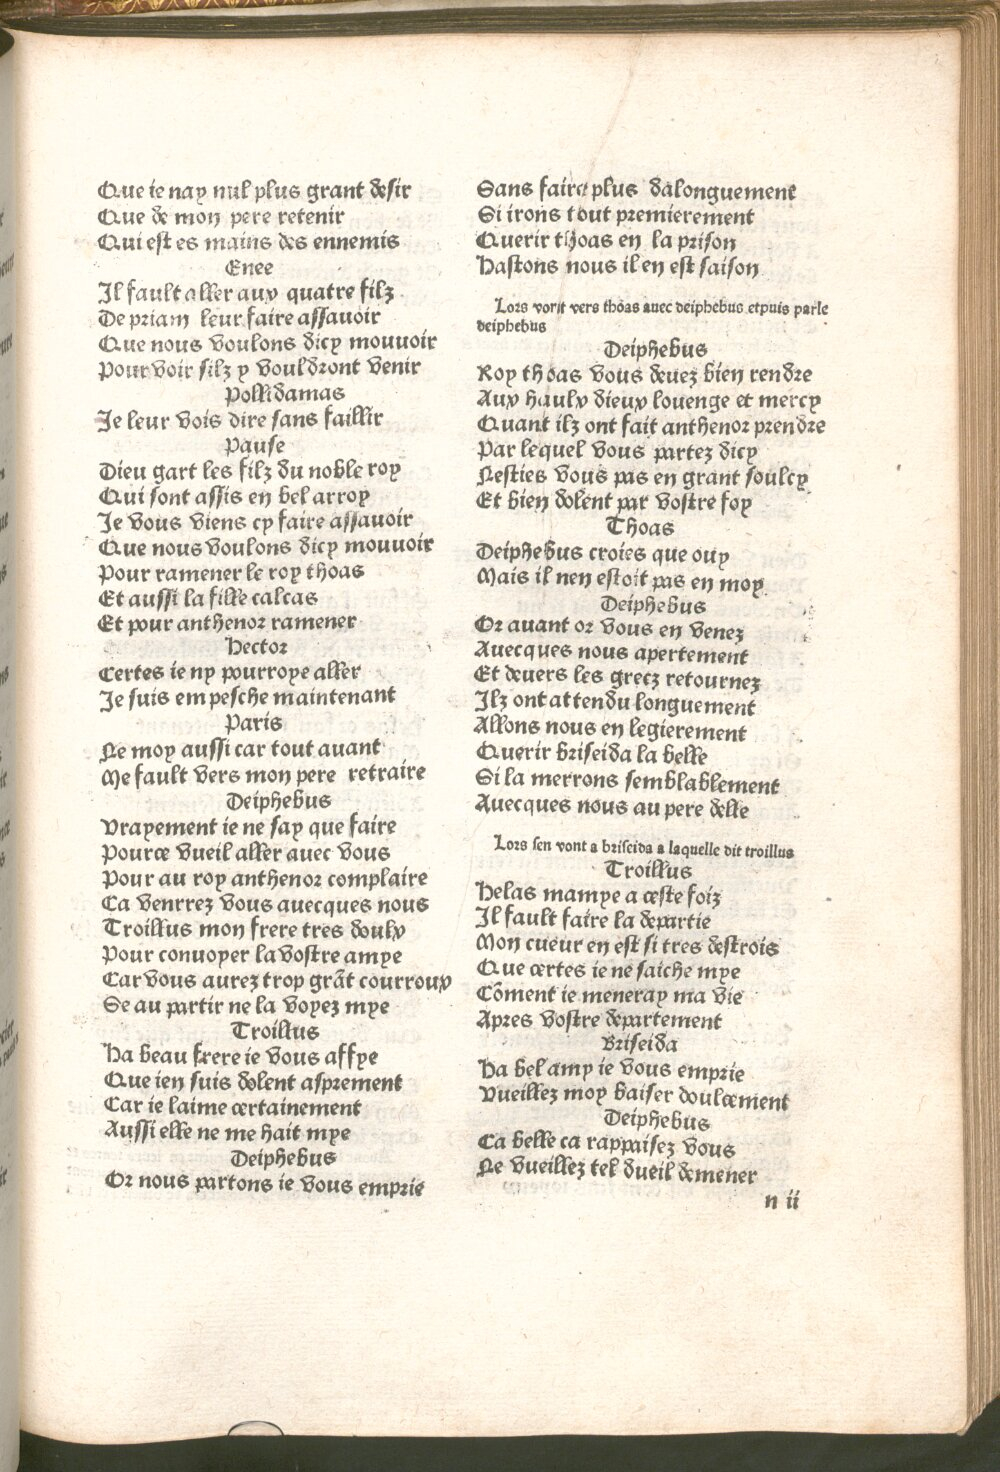 Que ie nay nul plus grant desir
Que de mon pere retenir
Qui est es mains des ennemis
Enee
Il fault aller aux quatre filz
De priam leur faire assauoir
Que nous voulons dicy mouuoir
Pour voir silz y vouldront venir
Pollidamas
Je leur vois dire sans faillir
Pause
Dieu gart les filz du noble roy
Qui sont assis en bel arroy
Je vous viens cy faire assauoir
Que nous voulons dicy mouuoir
Pour ramener le roy thoas
Et aussi la fille calcas
Et pour anthenor ramener
Hector
Certes ie ny pourroye aller
Je suis empesche maintenant
Paris
Ne moy aussi car tout auant
Me fault vers mon pere retraire
Deiphebus
Vrayement ie ne say que faire
Pource vueil aller auec vous
Pour au roy anthenor complaire
Ca venrrez vous auecques nous
Troillus mon frere tres doulx
Pour conuoyer la vostre amye
Car vous aurez trop grãt courroux
Se au partir ne la voyez mye
Troillus
Ha beau frere ie vous affye
Que ien suis dolent asprement
Car ie laime certainement
Aussi elle ne me hait mye
Deiphebus
Or nous partons ie vous emprie
Sans faire plus dalonguement
Si irons tout premierement
Querir thoas en la prison
Hastons nous il en est saison
Lors vont vers thoas auec deiphebus et puis parle
deiphebus
Deiphebus
Roy thoas vous deuez bien rendre
Aux haulx dieux louenge et mercy
Quant ilz ont fait anthenor prendre
Par lequel vous partez dicy
Nesties vous pas en grant soulcy
Et bien dolent par vostre foy
Thoas
Deiphebus croies que ouy
Mais il nen estoit pas en moy
Deiphebus
Or auant or vous en venez
Auecques nous apertement
Et deuers les grecz retournez
Ilz ont attendu longuement
Allons nous en legierement
Querir briseida la belle
Si la merrons semblablement
Auecques nous au pere delle
Lors sen vont a briseida a laquelle dit troillus
Troillus
Helas mamye a ceste foiz
Il fault faire la departie
Mon cueur en est si tres destrois
Que certes ie ne saiche mye
Cõment ie meneray ma vie
Apres vostre departement
Briseida
Ha bel amy ie vous emprie
Vueillez moy baiser doulcement
Deiphebus
Ca belle ca rappaisez vous
Ne vueillez tel dueil demener
n ii